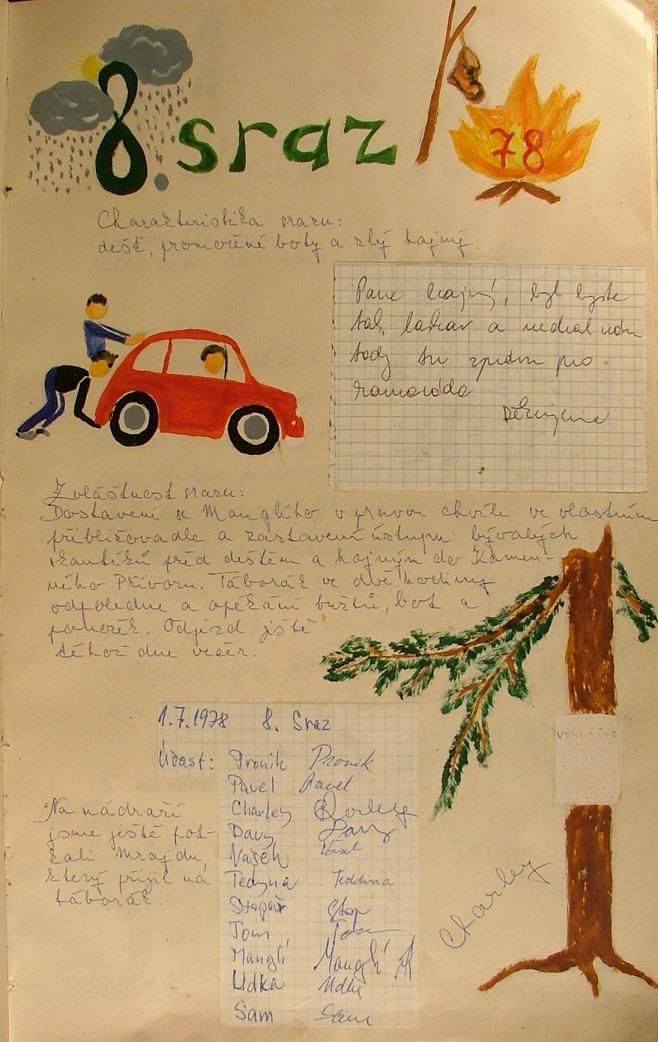 8. sraz
78
Charakteristika srazu:
dešt, promočené boty a zlý hajný.
Pane hajný, byl byste
tak laskav a nedral nám
tady tu
Děkujeme
Zvláštnost srazu:
Dostavení se Manglího v pravou chvíli ve vlastním
přibližovadle a zastavení ústupu bývalých
skautíků před deštěm a hajným do Kamen-
ného Přívozu. Táborák ve dvě hodiny
odpoledne a opékání buřtů, bot a
ponožek. Odjezd ještě
téhož dne večer.
1.7.1978 8. Sraz
Účast: Proník Proník
Pavel Pavel
Charley
Davy Davy
Vašek
Tedyna Teddina
Stopař Stop
Tom Tom
Manglí Manglí
Udka
Sam Sam
Na nádraží
jsme ještě pot-
kali Mrajdu,
který přijel na
táborák.
Charley